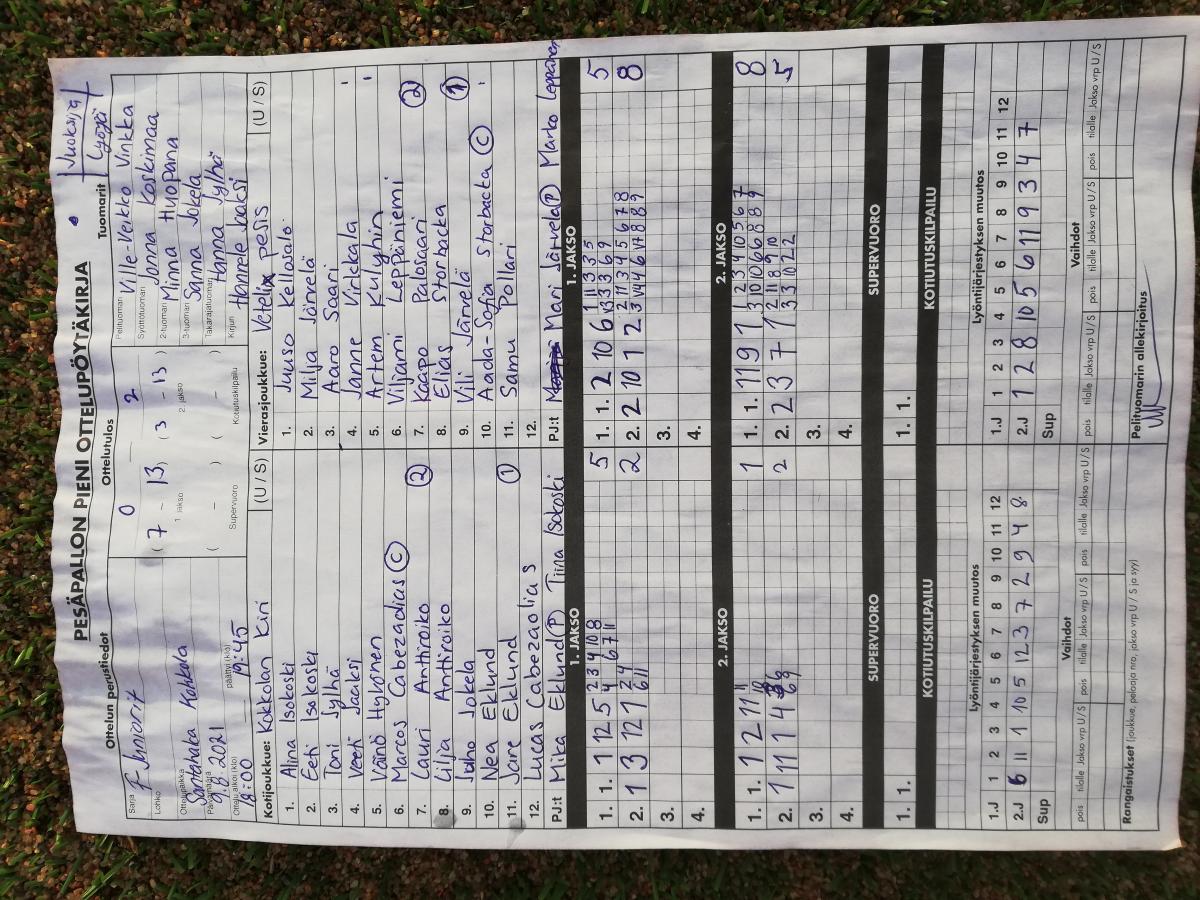 PESÄPALLON PIENI OTTELUPÖYTÄKIRJA
Ottelun perustiedot
Sarja F Juniorit
Lohko
Ottelupaikka Santahaka Kokkola
Päivämäärä 9.8.2021
Ottelu alkoi (klo) 18:00
päättyi (klo) 19:45
Ottelutulos
0 2
( 7 - 13 ) ( 3 - 13 )
1. jakso 2. jakso
( - ) ( - )
Supervuoro Kotiutuskilpailu
Tuomarit
Juoksija
Lyöjä
Pelituomari Ville-Veikko Vinkka
Syöttötuomari Jonna Koskimaa
2-tuomari Minna Huopana
3-tuomari Sanna Jokela
Takarajatuomari Hanna Jylhä
Kirjuri Hannele Jaaksi
Kotijoukkue: Kokkolan Kiri (U / S)
1. Alina Isokoski
2. Eeti Isokoski
3. Toni Jylhä
4. Veeti Jaaksi
5. Väinö Hylkönen
6. Marcos Cabezaolias C
7. Lauri Anttiroiko 2
8. Lilja Anttiroiko
9. Juho Jokela
10. Nea Eklund
11. Jare Eklund 1
12. Lucas Cabezaolias
PJ:t Mika Eklund P Tiina Isokoski
Vierasjoukkue: Vetelin pesis (U / S)
1. Juuso Kellosalo
2. Milja Järvelä
3. Aaro Saari
4. Janne Virkkala
5. Artem Kulyhin
6. Viljami Leppäniemi
7. Kaapo Palosaari 2
8. Elias Storbacka
9. Vili Järvelä 1
10. Aada-Sofia Storbacka C
11. Samu Pollari
12.
PJ:t Mari Järvelä P Marko Leppänen
1. JAKSO
1. 1. 1 12 5 2 3 4 10 8 5
4 6 7 11
2. 1 3 12 1 2 4 2
6 11
3.
4.
1. JAKSO
1. 1. 2 10 6 1 11 3 3 5 5
2. 2 10 1 2 2 11 3 4 5 6 7 8 8
3.
4.
2. JAKSO
1. 1. 1 2 11 1
2. 1 11 1 4 2
3.
4.
2. JAKSO
1. 1. 11 9 1 1 2 3 4 10 5 6 7 8
3 10 10 6 6 8 8 9
2. 2 3 7 1 2 11 8 9 10 5
3 3 10 2 2
3.
4.
SUPERVUORO
1. 1.
SUPERVUORO
1. 1.
KOTIUTUSKILPAILU
KOTIUTUSKILPAILU
Lyöntijärjestyksen muutos
1.J 1 2 3 4 5 6 7 8 9 10 11 12
2.J 6 11 1 10 5 12 3 7 2 9 4 8
Sup
Lyöntijärjestyksen muutos
1.J 1 2 3 4 5 6 7 8 9 10 11 12
2.J 1 2 8 10 5 6 11 9 3 4 7
Sup
Vaihdot
pois tilalle Jakso vrp U / S pois tilalle Jakso vrp U / S pois tilalle Jakso vrp U / S
Vaihdot
pois tilalle Jakso vrp U / S pois tilalle Jakso vrp U / S pois tilalle Jakso vrp U / S
Rangaistukset (joukkue, pelaaja nro, jakso vrp, U / S ja syy)
Pelituomarin allekirjoitus